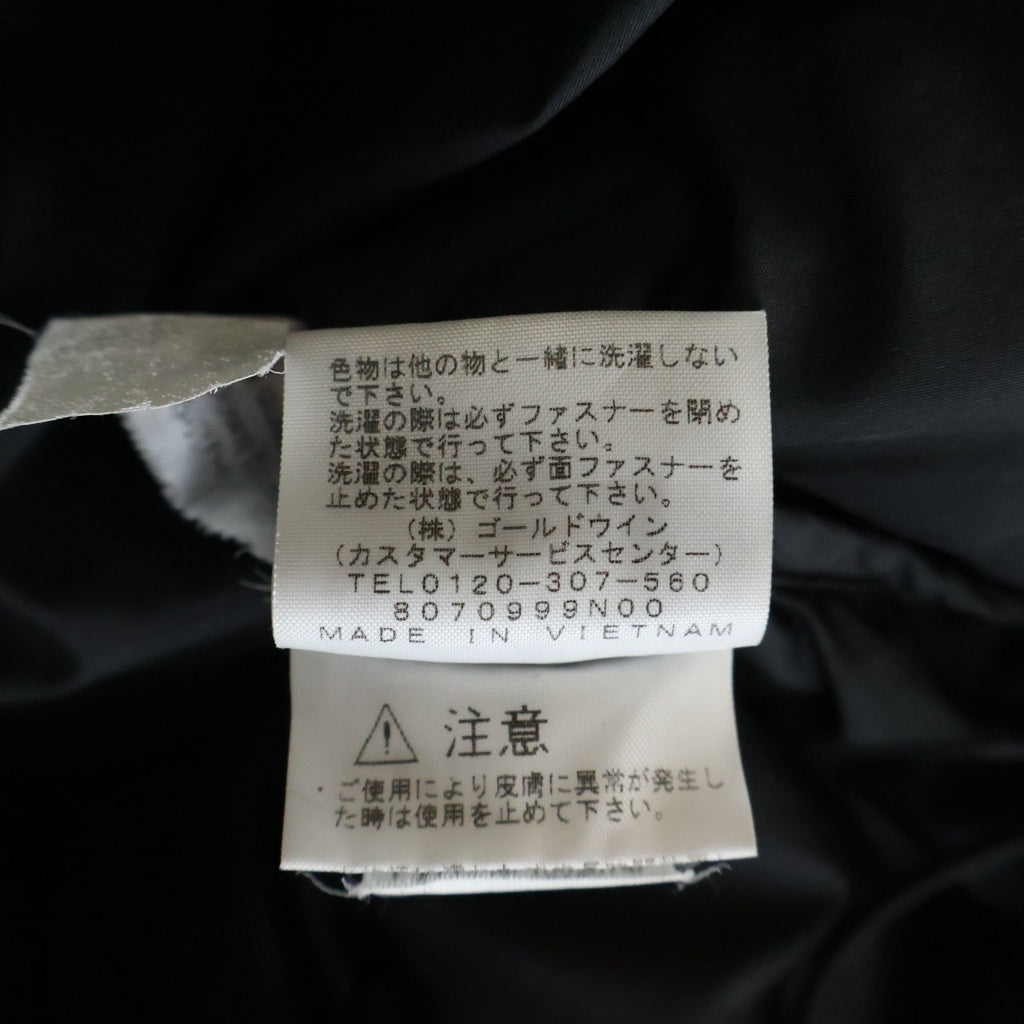 色物は他の物と一緒に洗濯しない
で下さい。
洗濯の際は必ずファスナーを閉め
た状態で行って下さい。
洗濯の際は、必ず面ファスナーを
止めた状態で行って下さい。
(株)ゴールドウイン
(カスタマーサービスセンター)
TEL0120-307-560
8070999N00
MADE IN VIETNAM
注意
・ご使用により皮膚に異常が発生し
た時は使用を止めて下さい。